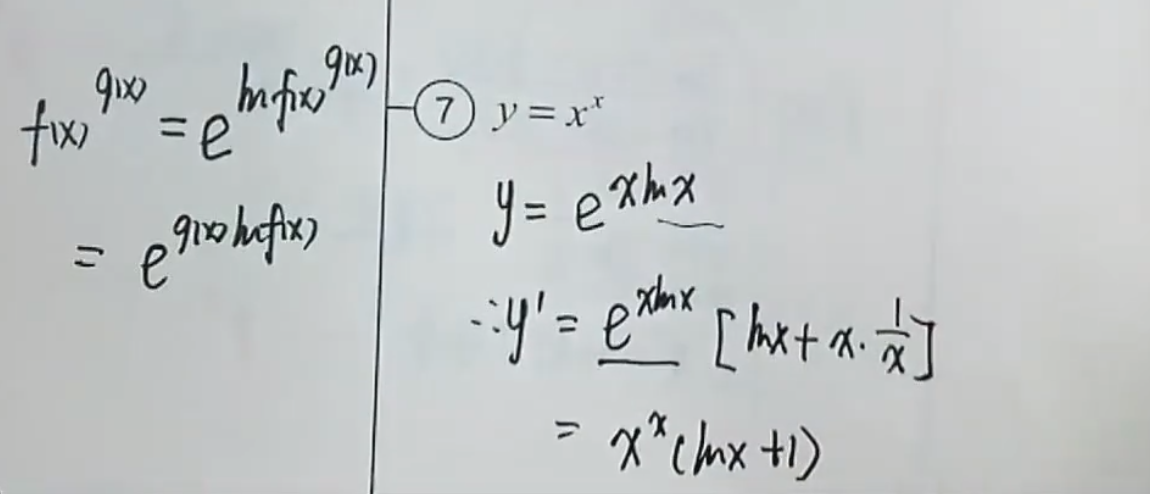 f(x)^{g(x)} = e^{ln f(x)^{g(x)}}
= e^{g(x) ln f(x)}
⑦ y = x^x
y = e^{x ln x}
∴ y' = e^{x ln x} [ln x + x · \frac{1}{x}]
= x^x (ln x + 1)